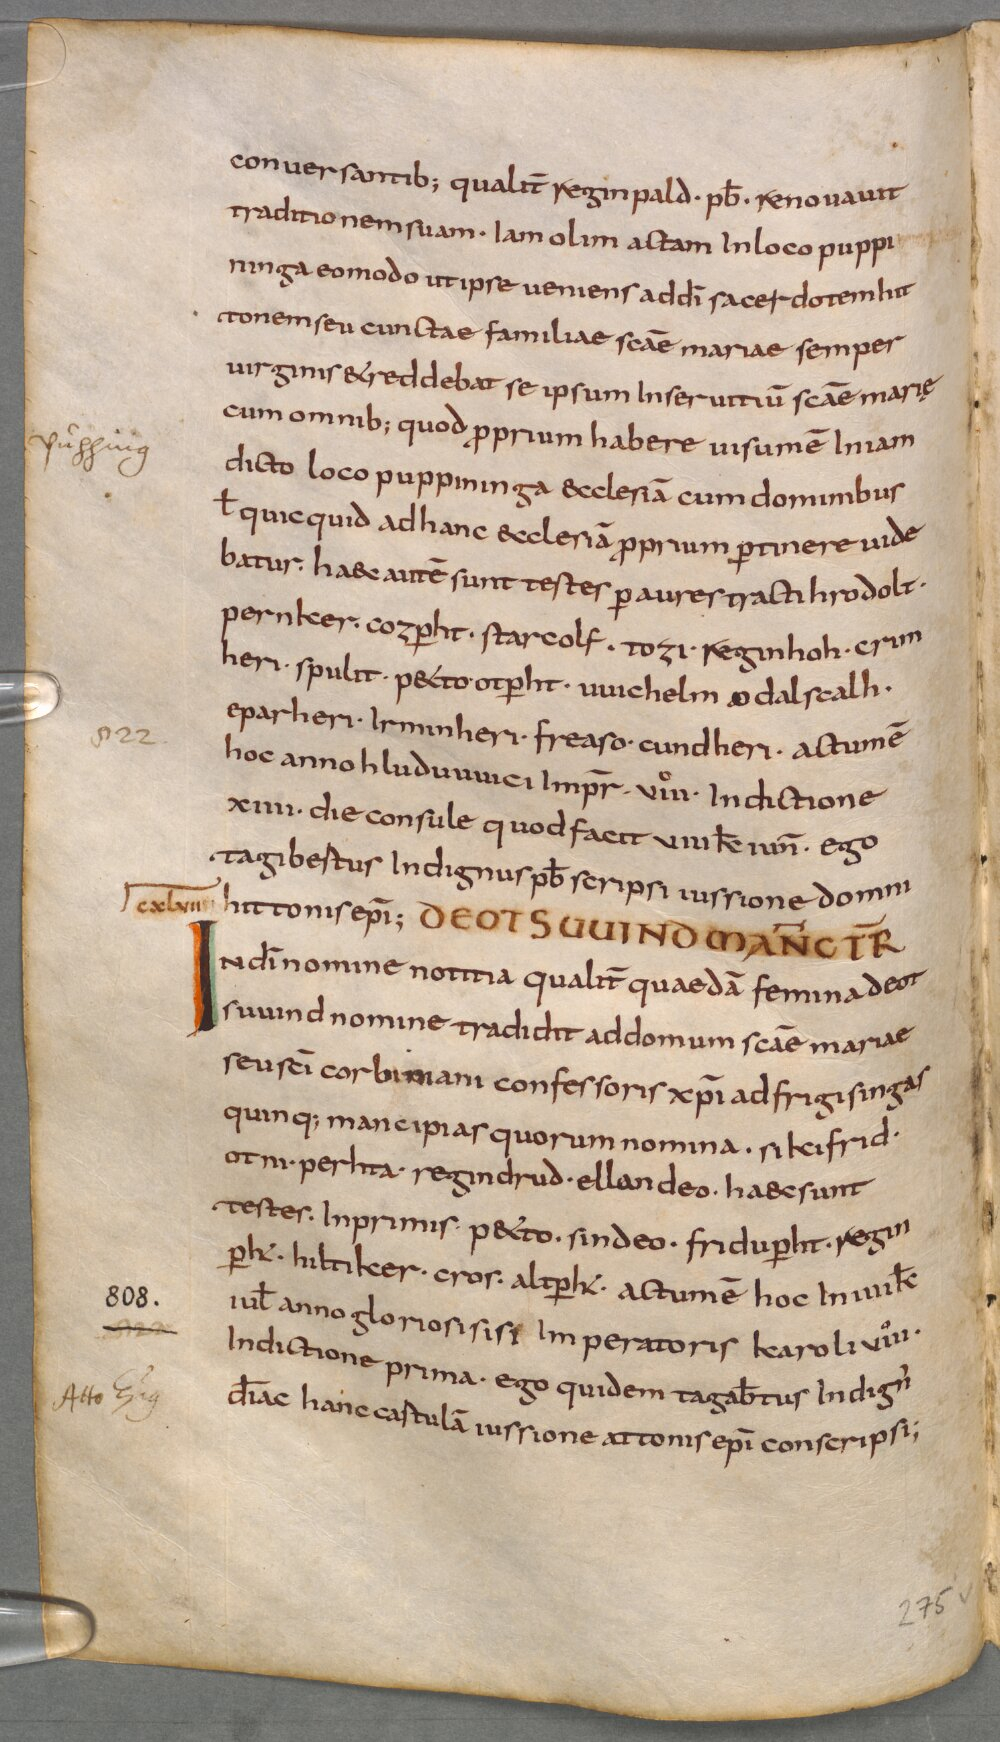 conuersantib; qualit̄ reginpald · pb̄ · renouauit
traditionem suam · Iam olim actam In loco puppi
ninga eo modo ut ipse ueniens ad dī sacerdotem hit
tonem seu cunctae familiae scāe mariae semper
uirginis & reddebat se ipsum In seruitiū scāe marię
cum omnib; quod ꝓprium habere uisum ē In iam
dicto loco puppininga ecclesiā cum dominibus
ł quicquid ad hanc ecclesiā ꝓprium ꝑtinere uide
batur · haec autē sunt testes ꝑ aures tracti hrodolt ·
pernker · cozꝑht · starcolf · tozi · reginhoh · crim
heri · spulit · p&to · otꝑht · uuichelm · odalscalh ·
eparheri · Irminheri · freaso · cundheri · actum ē
hoc anno hluduuuici Imp̄r · uiııı · Indictione
xiiii · die consule quod facit uiiii kł iuñ · ego
tagibestus Indignus pb̄ scripsi iussione domni
hittonis ep̄i; DEOTSUUIND MANC̄ TR̄
cxlvıııı
IN dī nomine notitia qualit̄ quaedā femina deot
suuind nomine tradidit ad domum scāe mariae
seu sc̄i corbiniani confessoris xp̄i ad frigisingas
quinq; mancipias quorum nomina · sikifrid ·
otni · perhta · regindrud · ellandeo · haec sunt
testes · In primis · p&to · sindeo · friduꝑht · regin
ꝑh̄t · hiltiker · cros · altꝑh̄t · actum ē hoc In uiiii kł
iul̄ anno gloriosisisi Imperatoris karoli uiııı ·
Indictione prima · ego quidem tagab̄tus Indigñ
diāc hanc castulā iussione attonis ep̄i conscripsi;
Püpping
822
808.
822
Atto
275 v